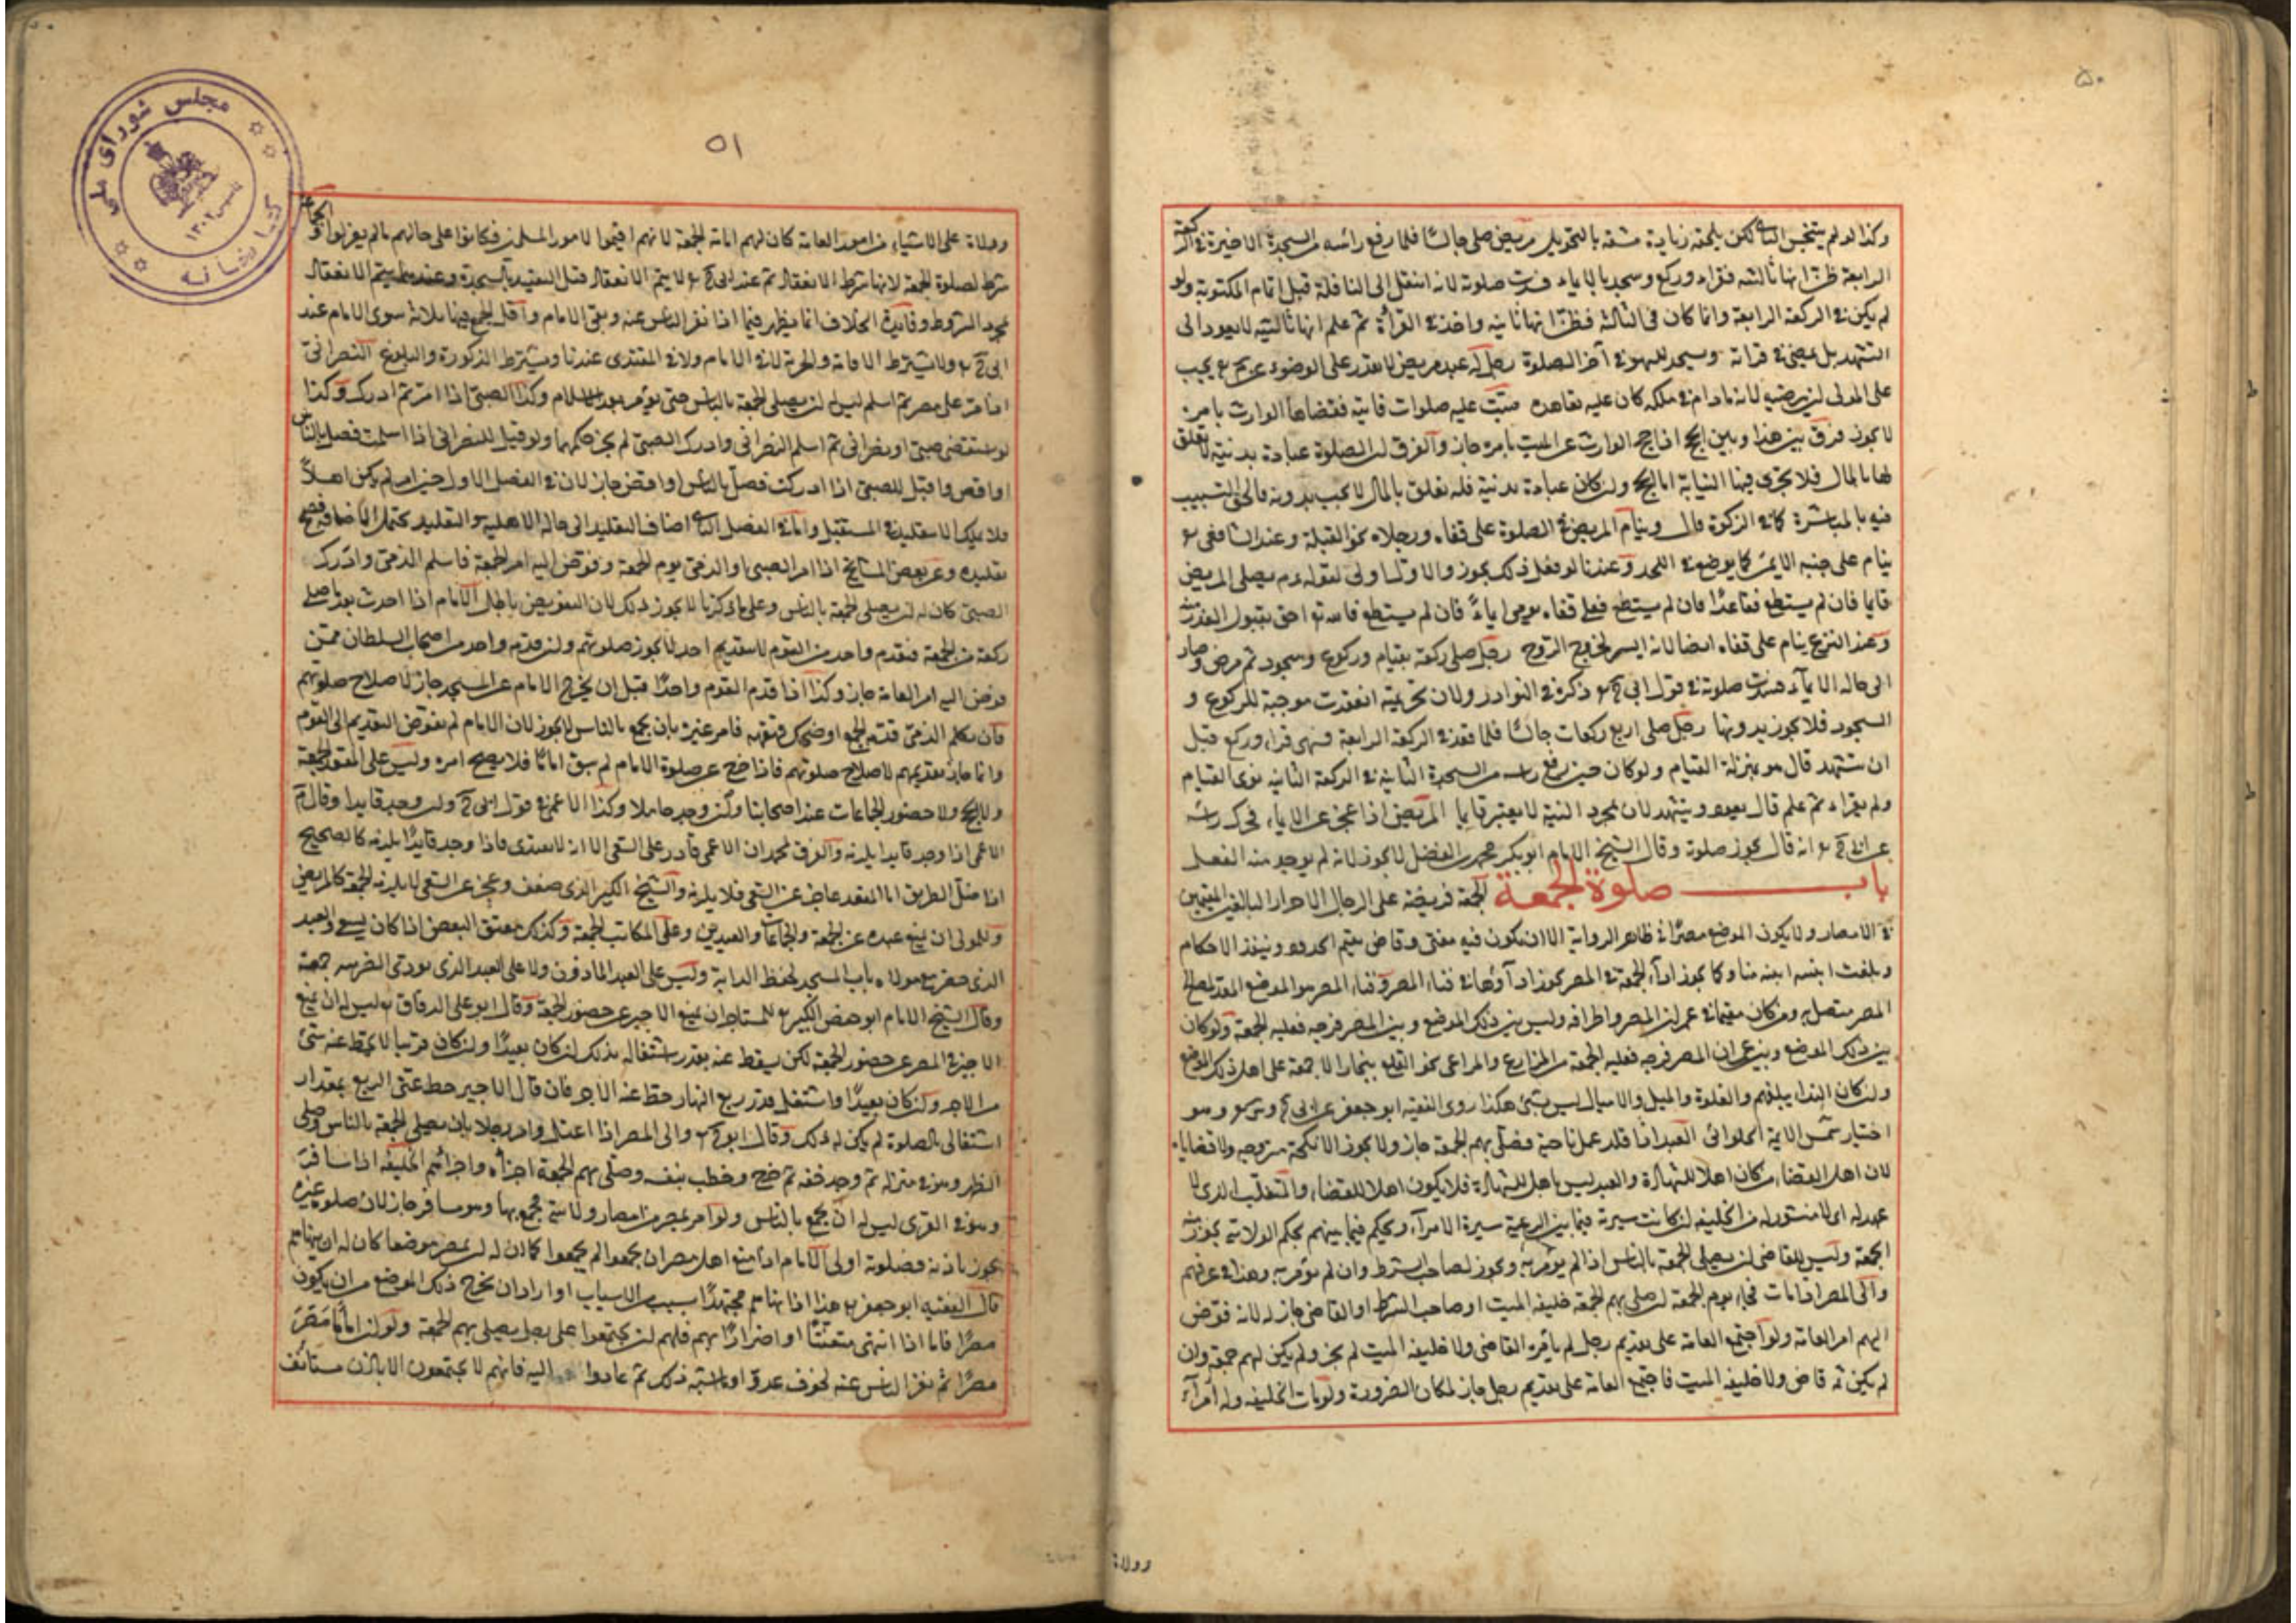 ۵۰
وكذا لو لم يتنجس الثاني لكن يلحقه زيادة مشقة بالتحويل مريض صلى جالسا فلما رفع رأسه من السجدة الاخيرة في الركعة
الرابعة ظن انها ثالثة فقراء وركع وسجد بالايماء فسدت صلوته لانه انتقل الى النافلة قبل اتمام المكتوبة ولو
لم يكن في الركعة الرابعة وانما كان في الثالثة فظن انها ثانية واخذ في القرأة ثم علم انها ثالثة لا يعود الى
التشهد بل يمضي في قراته ويسجد للسهو في آخر الصلوة رجل له عبد مريض لا يقدر على الوضوء عن محمد يجب
على المولى ان يوضيه لانه مادام في ملكه كان عليه تعاهده ميت عليه صلوات فايتة فقضاها الوارث بامره
لا يجوز فرق بين هذا وبين الحج اذا حج الوارث عن الميت بامره جاز والفرق ان الصلوة عبادة بدنية لا تعلق
لها بالمال فلا تجزى فيها النيابة اما الحج وان كان عبادة بدنية فله تعلق بالمال لا يجب بدونه فالحق التسبيب
فيه بالمباشرة كما في الزكوة قال وينام المريض في الصلوة على قفاه ورجلاه نحو القبلة وعند الشافعي
ينام على جنبه الايمن كما يوضع في اللحد وعندنا لو فعل ذلك يجوز والاول اولى لقوله يصلى المريض
قايما فان لم يستطع فقاعدا فان لم يستطع فعلى قفاه يومى ايماءً فان لم يستطع فالله احق بقبول العذر منه
وعند النزع ينام على قفاه ايضا لانه ايسر لخروج الروح رجل صلى ركعة بقيام وركوع وسجود ثم مرض وصار
الى حالة الايمآء فسدت صلوته في قول ابي ح ذكره في النوادر ولان تحريمته انعقدت موجبة للركوع و
السجود فلا يجوز بدونها رجل صلى اربع ركعات جالسا فلما قعد في الركعة الرابعة فسهى قراء وركع قبل
ان يتشهد قال هو بمنزلة القيام ولو كان حين رفع راسه من السجدة الثانية في الركعة الثانية نوى القيام
ولم يقراء ثم علم قال يعود ويتشهد لان مجرد النية لا يعتبر قايما المريض اذا عجز عن الايماء فحرك رأسه
عن ابي ح انه قال يجوز صلوته وقال الشيخ الامام ابو بكر محمد بن الفضل لا يجوز لانه لم يوجد منه الفعل
باب صلوة الجمعة الجمعة فريضة على الرجال الاحرار البالغين المقيمين
في الامصار ولا يكون الموضع مصرا في ظاهر الرواية الا ان يكون فيه مفتى وقاض يقيم الحدود وينفذ الاحكام
وبلغت ابنيته ابنية منا وكما يجوز ادآء الجمعة في المصر يجوز ادآؤها في فناء المصر وفناء المصر هو الموضع المعد لمصالح
المصر متصل به ومن كان مقيما في عمران المصر واطرافه وليس بين ذلك الموضع وبين المصر فرجة فعليه الجمعة ولو كان
بين ذلك الموضع وبين عمران المصر فرجة من المزارع والمراعى نحو القلع ببخارا لا جمعة على اهل ذلك الموضع
وان كان النداء يبلغهم والغلوة والميل والاميال ليس بشئ هكذا روى الفقيه ابو جعفر عن ابي ح وهو
اختيار شمس الايمة الحلوائى العبد اذا قلد عمل ناحية فصلى بهم الجمعة جاز ولا يجوز الانكحة بتزويجه ولا قضاياه
لان اهل القضاء من كان اهلا للشهادة والعبد ليس باهل للشهادة فلا يكون اهلا للقضاء والمتغلب الذى لا
عهد له اى لا منشور له من الخليفة ان كانت سيرته فيما بين الرعية سيرة الامرآء ويحكم فيما بينهم بحكم الولاة يجوز منه
الجمعة وليس للقاضى ان يصلى الجمعة بالناس اذا لم يؤمر به ويجوز لصاحب الشرط وان لم يؤمر به وهذا في عرفهم
والى المصر اذا مات فجاء يوم الجمعة ان صلى بهم الجمعة خليفة الميت او صاحب الشرط او القاضى جاز له لانه فوض
اليهم امر العامة ولو اجتمع العامة على تقديم رجل لم يأمره القاضى ولا خليفة الميت لم يجز ولم يكن لهم جمعة وان
لم يكن ثمه قاض ولا خليفة الميت فاجتمع العامة على تقديم رجل جاز لمكان الضرورة ولو مات الخليفة وله امرآء
وولاة
۵۱
وولاة على الاشياء من امور العامة كان لهم اقامة الجمعة لانهم اقيموا لامور المسلمين فكانوا على حالهم ما لم يعزلوا والجماعة
شرط لصلوة الجمعة لانها شرط الانعقاد ثم عند ابي ح لا يتم الانعقاد قبل التقييد بالسجدة وعندهما يتم الانعقاد
بمجرد الشروط وفايدة الخلاف انما يظهر فيما اذا نفر الناس عنه وبقى الامام واقل الجمع فيها ثلاثة سوى الامام عند
ابي ح ولا يشترط الاقامة والحرية لا في الامام ولا في المقتدى عندنا ويشترط الذكورة والبلوغ النصراني
اذا امر على مصر ثم اسلم ليس له ان يصلى الجمعة بالناس حتى يؤمر بعد الاسلام وكذا الصبي اذا امر ثم ادرك وكذا
لو استقضى صبي او نصراني ثم اسلم النصراني وادرك الصبي لم يجز حكمهما ولو قيل للنصراني اذا اسلمت فصل بالناس
او اقض او قيل للصبي اذا ادركت فصل بالناس او اقض جاز لان في الفصل الاول حين امر لم يكن اهلاً
فلا يملك الا بتقليد في المستقبل واما في الفصل الثاني اضاف التقليد الى حالة الاهلية والتقليد يحتمل الاضافة فصح
تقليده وعن بعض المشايخ اذا امر الصبي او الذمى يوم الجمعة وفوض اليه امر الجمعة فاسلم الذمى وادرك
الصبي كان له ان يصلى الجمعة بالناس وعلى ما ذكرنا لا يجوز ذلك لان التفويض باطل الامام اذا احدث بعد ما صلى
ركعة من الجمعة فتقدم واحد من القوم لا بتقديم احد لا يجوز صلوتهم وان قدمه واحد من اصحاب السلطان ممن
فوض اليه امر العامة جاز وكذا اذا قدم القوم واحدًا قبل ان يخرج الامام عن المسجد جاز لاصلاح صلوتهم
فان تكلم الذى قدمه الجمع او ضحك قهقهة فامر غيره بان يجمع بالناس لا يجوز لان الامام لم يفوض التقديم الى القوم
وانما جاز تقديمهم لاصلاح صلوتهم فاذا خرج عن صلوة الامام لم يبق اماما فلا يصح امره وليس على المقعد الجمعة
ولا الحج ولا حضور الجماعات عند اصحابنا وان وجد حاملا وكذا الاعمى في قول ابي ح وان وجد قايدا وقال م
الاعمى اذا وجد قايدا يلزمه والفرق لمحمد ان الاعمى قادر على السعى الا انه لا يهتدى فاذا وجد قايدًا يلزمه كالصحيح
اذا ضل الطريق اما المقعد عاجز عن السعى فلا يلزمه والشيخ الكبير الذى ضعف وعجز عن السعى لا يلزمه الجمعة كالمريض
وللمولى ان يمنع عبده عن الجمعة والجماعات والعيدين وعلى المكاتب الجمعة وكذلك معتق البعض اذا كان يسعى والعبد
الذى حضر مع مولاه باب المسجد لحفظ الدابة وليس على العبد الماذون ولا على العبد الذى يودى الضريبة جمعة
وقال الشيخ الامام ابو حفص الكبير للمستاجر ان يمنع الاجير عن حضور الجمعة وقال ابو على الدقاق ليس له ان يمنع
الاجير في المصر عن حضور الجمعة لكن يسقط عنه بقدر اشتغاله بذلك ان كان بعيدًا وان كان قريبا لا يحط عنه شئ
من الاجر وان كان بعيدًا واشتغل قدر ربع النهار حط عنه الاجر فان قال الاجير حط عنى الربع بمقدار
اشتغالى بالصلوة لم يكن له ذلك وقال ابو ح والى المصر اذا اعتل وامر رجلا بان يصلى الجمعة بالناس وصلى
الظهر وهو في منزله ثم وجد خفة ثم خرج وخطب بنفسه وصلى بهم الجمعة اجزأه واجزأتهم الخليفة اذا سافر
وهو في القرى ليس له ان يجمع بالناس ولو امر بمصر من امصار ولايته فجمع بها وهو مسافر جاز لان صلوة غيره
يجوز باذنه فصلوته اولى الامام اذا منع اهل مصر ان يجمعوا لم يجمعوا كما ان له ان يمصر موضعا كان له ان ينهاهم
قال الفقيه ابو جعفر هذا اذا نهاهم مجتهدًا بسبب من الاسباب او اراد ان يخرج ذلك الموضع من ان يكون
مصرًا فاما اذا انتهى متعنتًا او اضرارًا بهم فلهم ان يجتمعوا على رجل يصلى بهم الجمعة ولو ان امامًا مصّر
مصرًا ثم نفر الناس عنه لخوف عدو او ما اشبه ذلك ثم عادوا اليه فانهم لا يجتمعون الا باذن مستأنف
مجلس شورای ملی
کتابخانه
تاسیس ۱۳۰۲